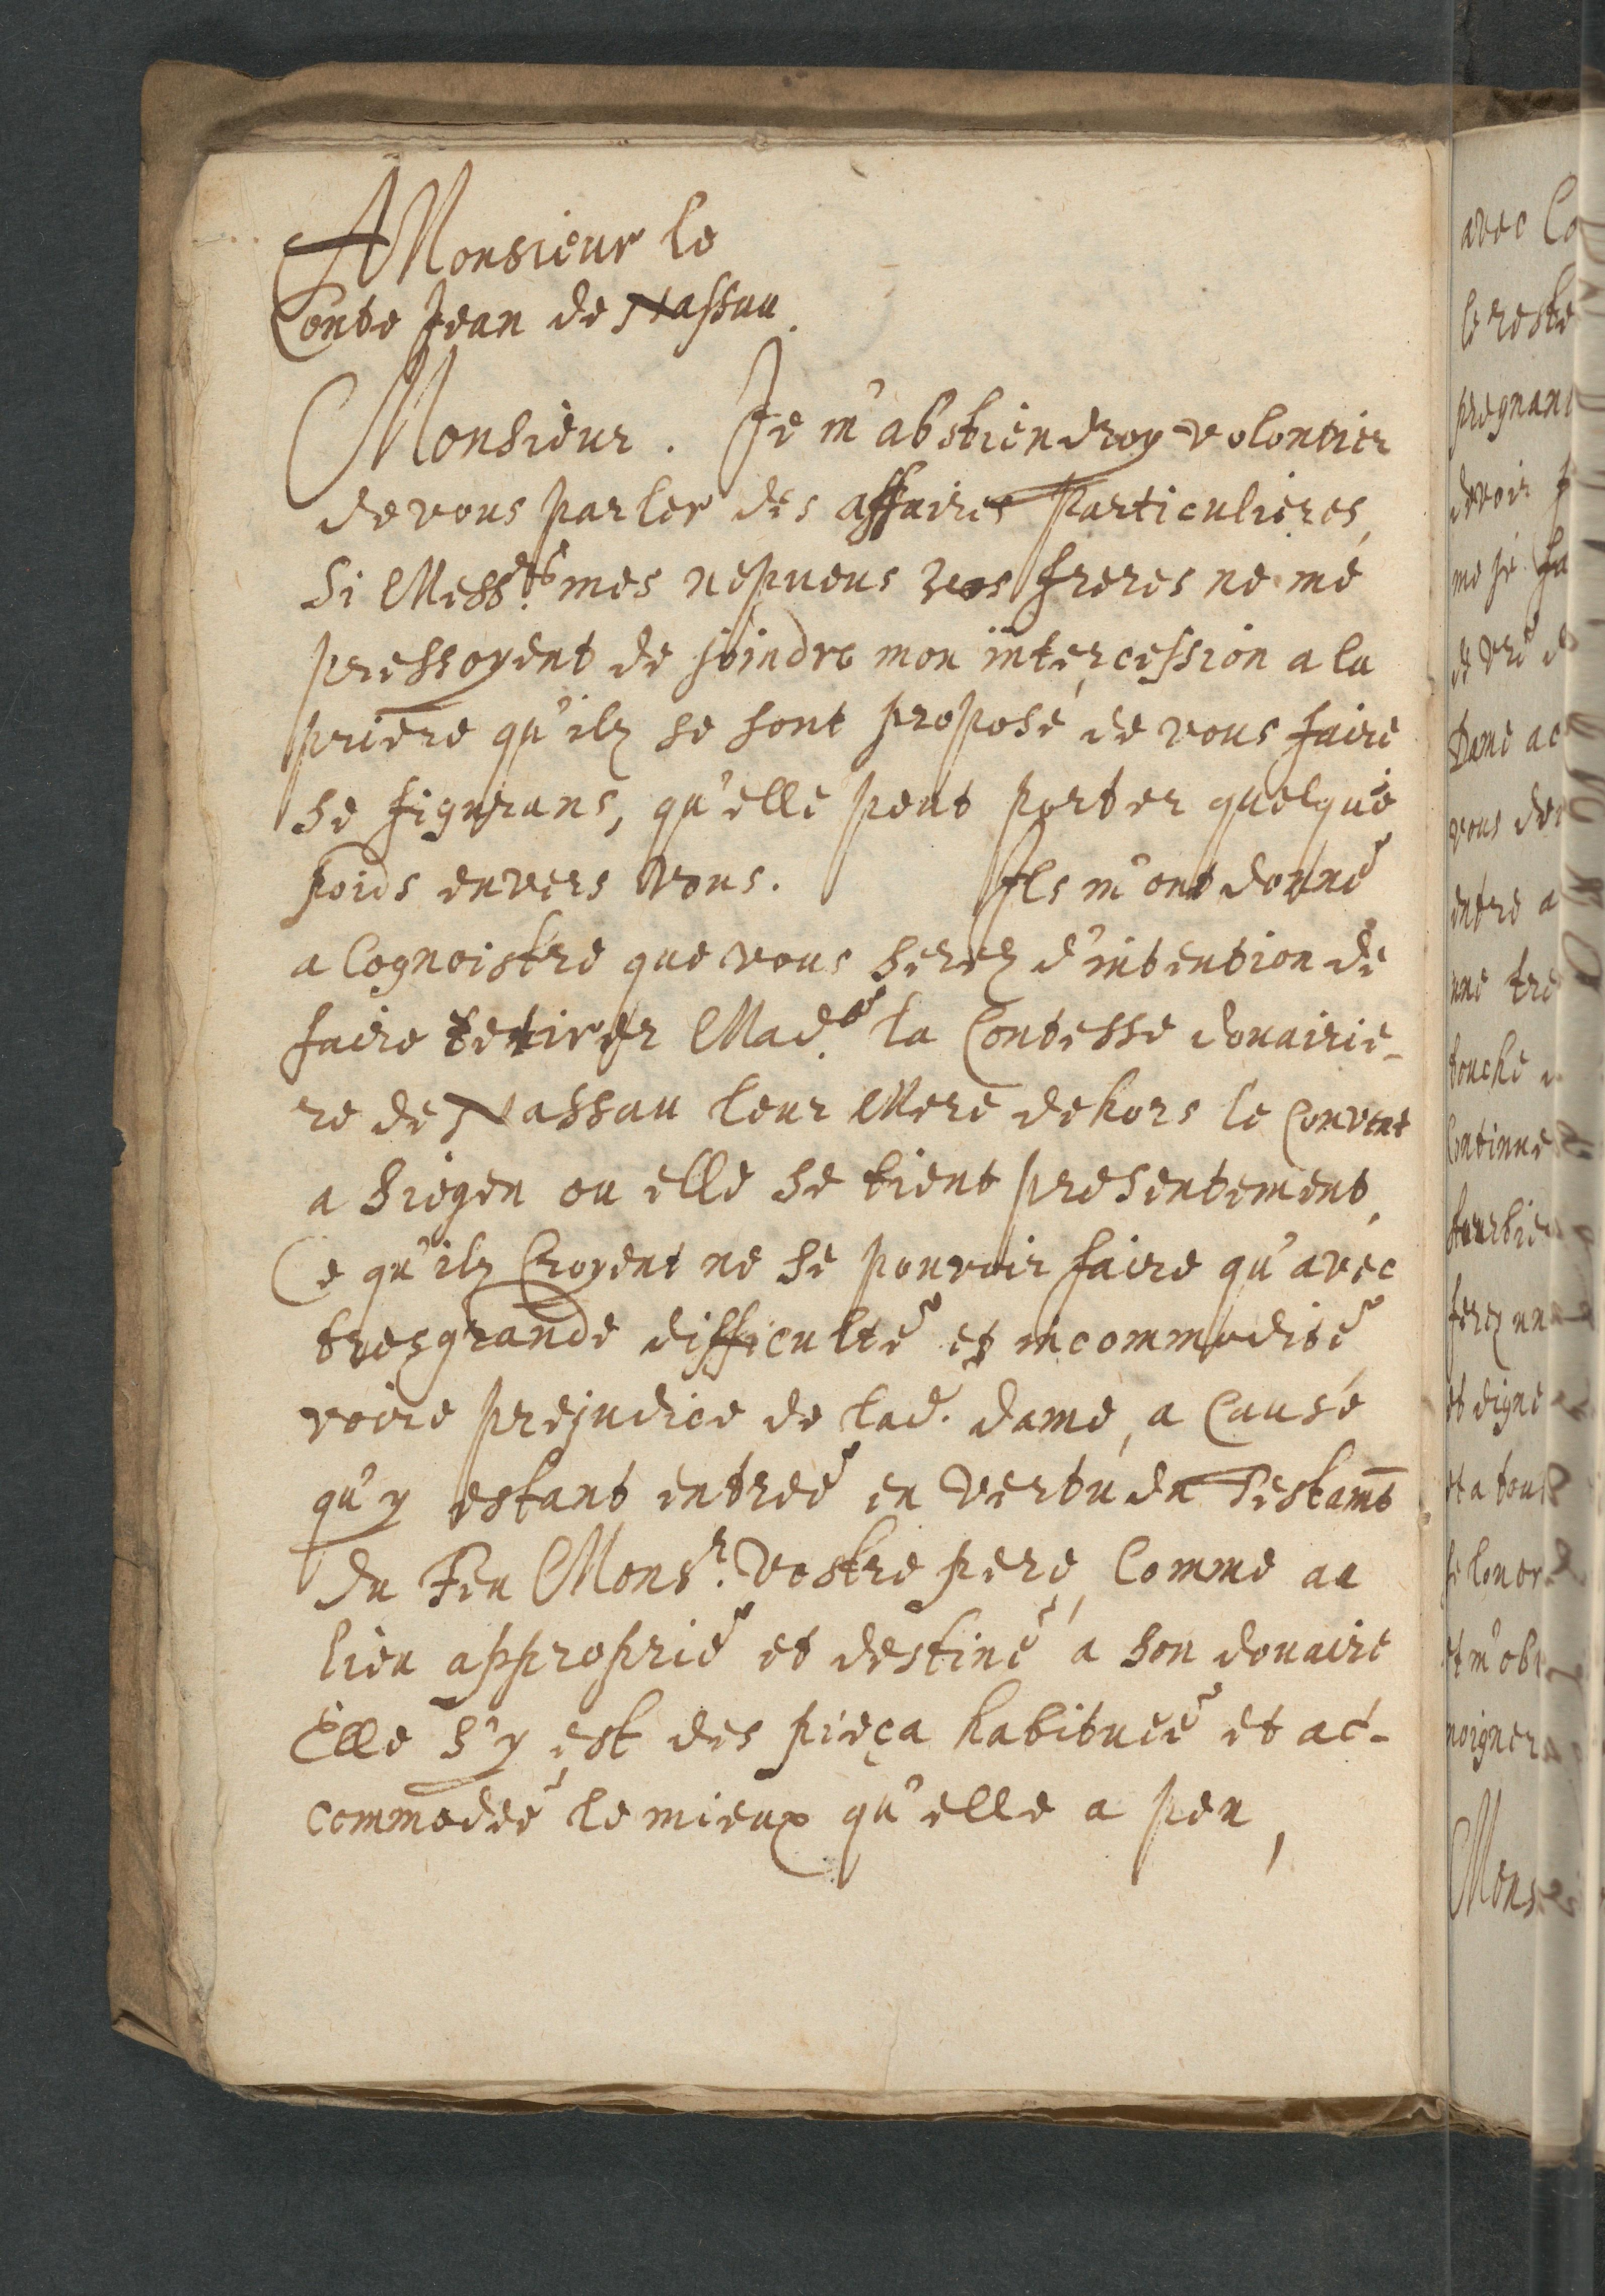 A Monsieur le
Conte Jean de Nassau.
Monsieur. Je m'abstiendroy volontier
de vous parler des affaires particulieres,
Si Mess.rs mes nepueus vos freres ne me
pressoyent de joindre mon intercession a la
priere qu'ilz se sont proposé de vous faire
se figurans, qu'elle peut porter quelque
poids envers vous. Ils m'ont donné
a Cognoistre que vous serez d'intention de
faire retirer Mad.e la Contesse douairie-
re de Nassau leur Mere dehors le Convent
a Siegen ou elle se tient presentement,
Ce qu'ilz Croyent ne se pouvoir faire qu'avec
tresgrande difficulté et incommodité
voire prejudice de lad. dame, a Cause
qu'y estant entreé en vertu du Testamt
du Feu Monsr. Vostre pere, Comme au
lieu approprié et destiné a son douaire
Elle s'y est des pieça habitueé et ac-
commodeé le mieux qu'elle a peu,
avec
le reste
pregnant
devoir
me je
de vre
Dame
vous
entre a
une
touche
Continue
ferez un
et digne
et a tous
et m'ob
moigner
Mons